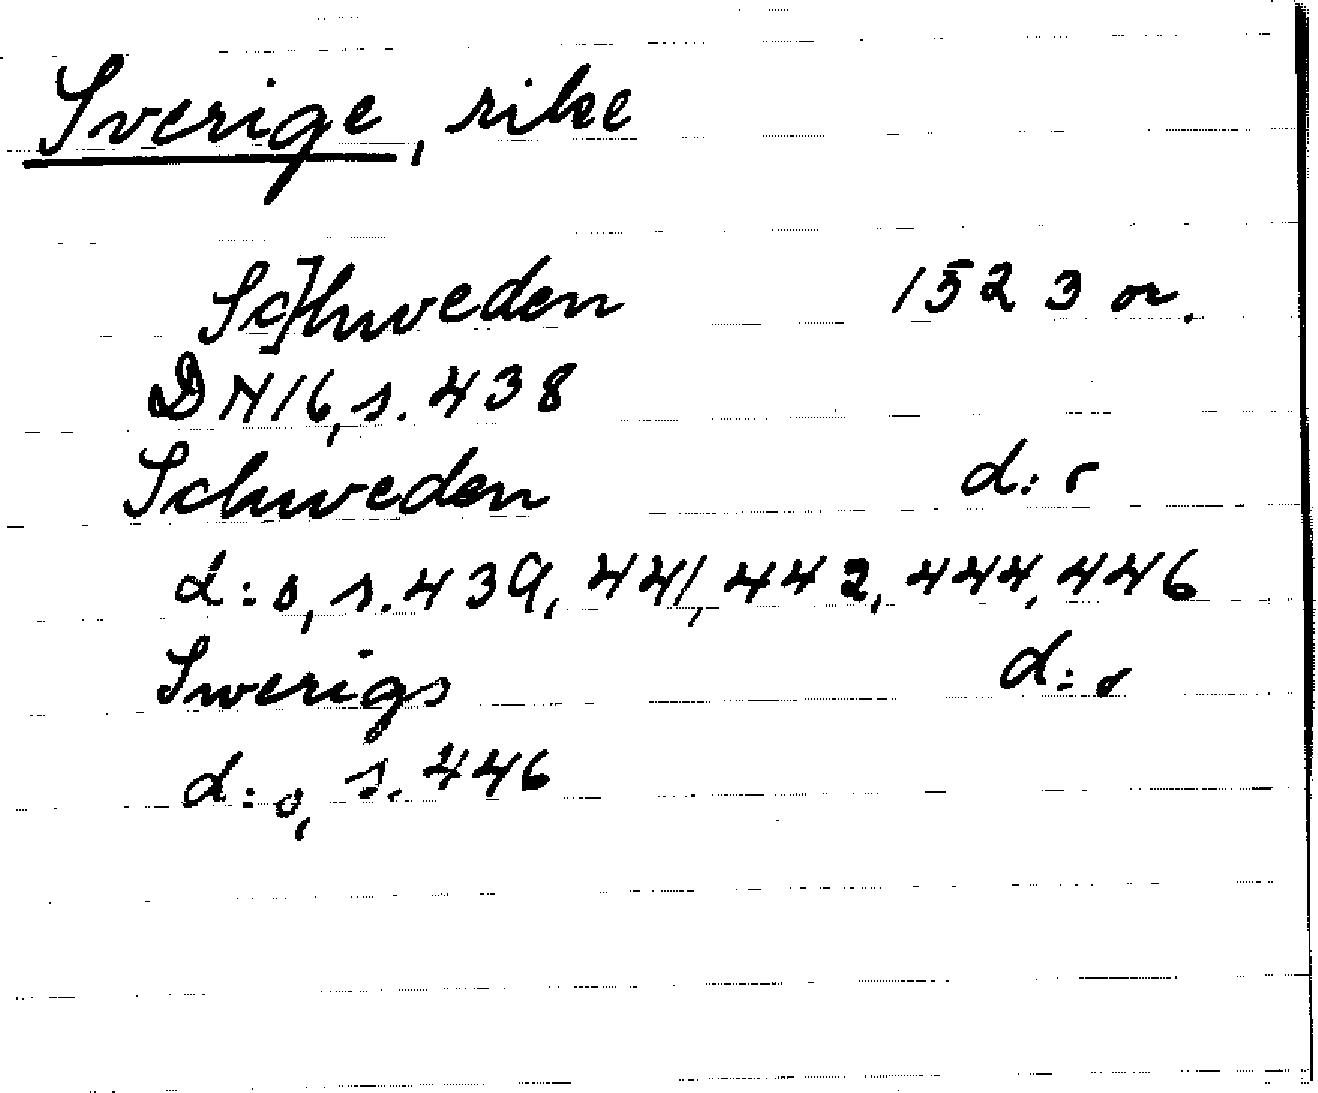 Sverige, rike
Sc]hweden 1523 or.
DN16, s. 438
Schweden d:o
d:o, s. 439, 441, 442, 444, 446
Swerigs d:o
d:o, s. 446